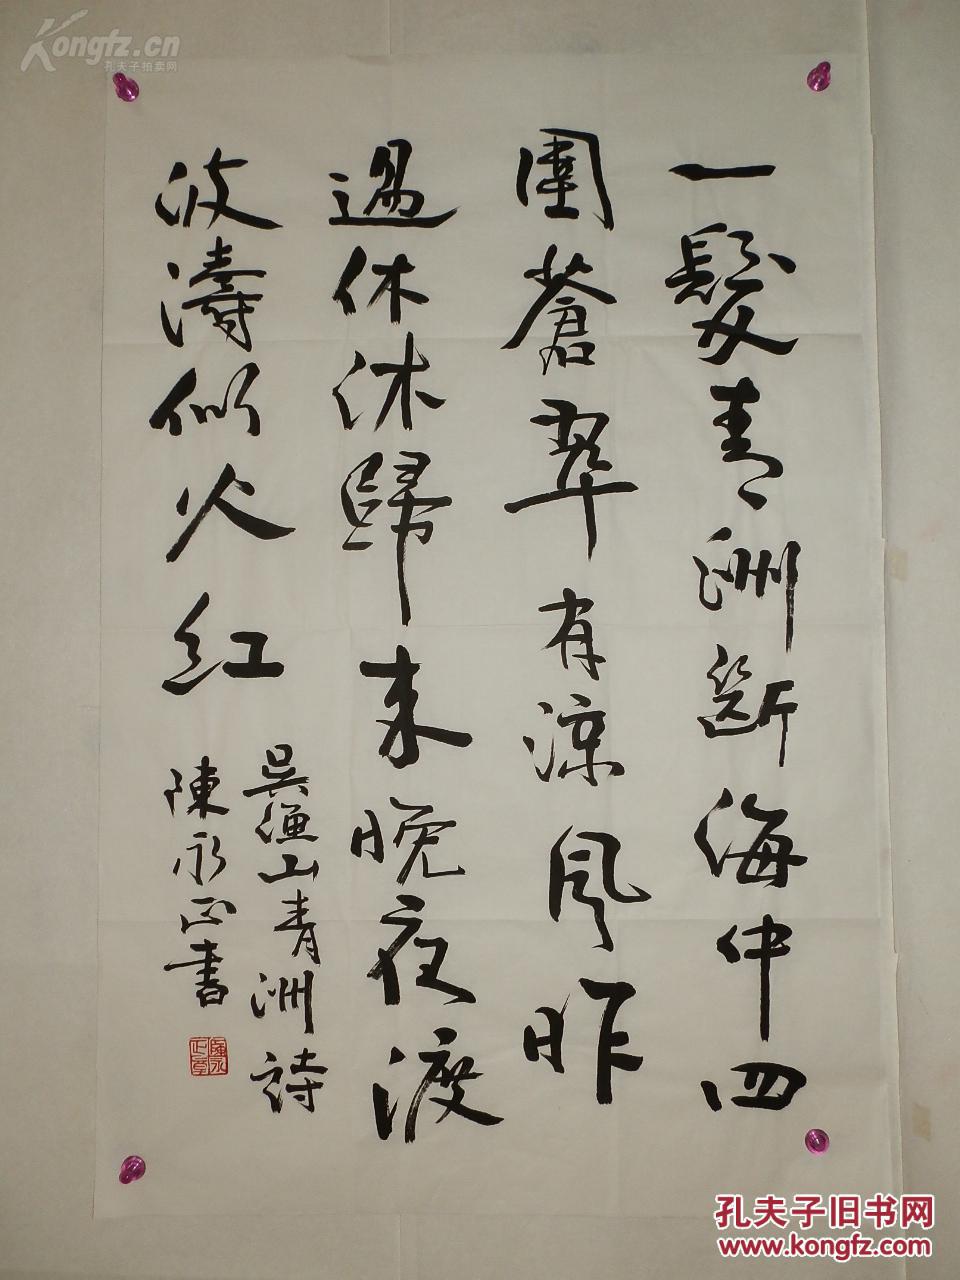 一髮青洲斷海中四
圍蒼翠有涼風昨
過休沐歸來晚夜渡
波濤似火紅
吳漁山青洲詩
陳永正書
陳永
正章
Kongfz.cn
孔夫子拍卖网
孔夫子旧书网
www.kongfz.com